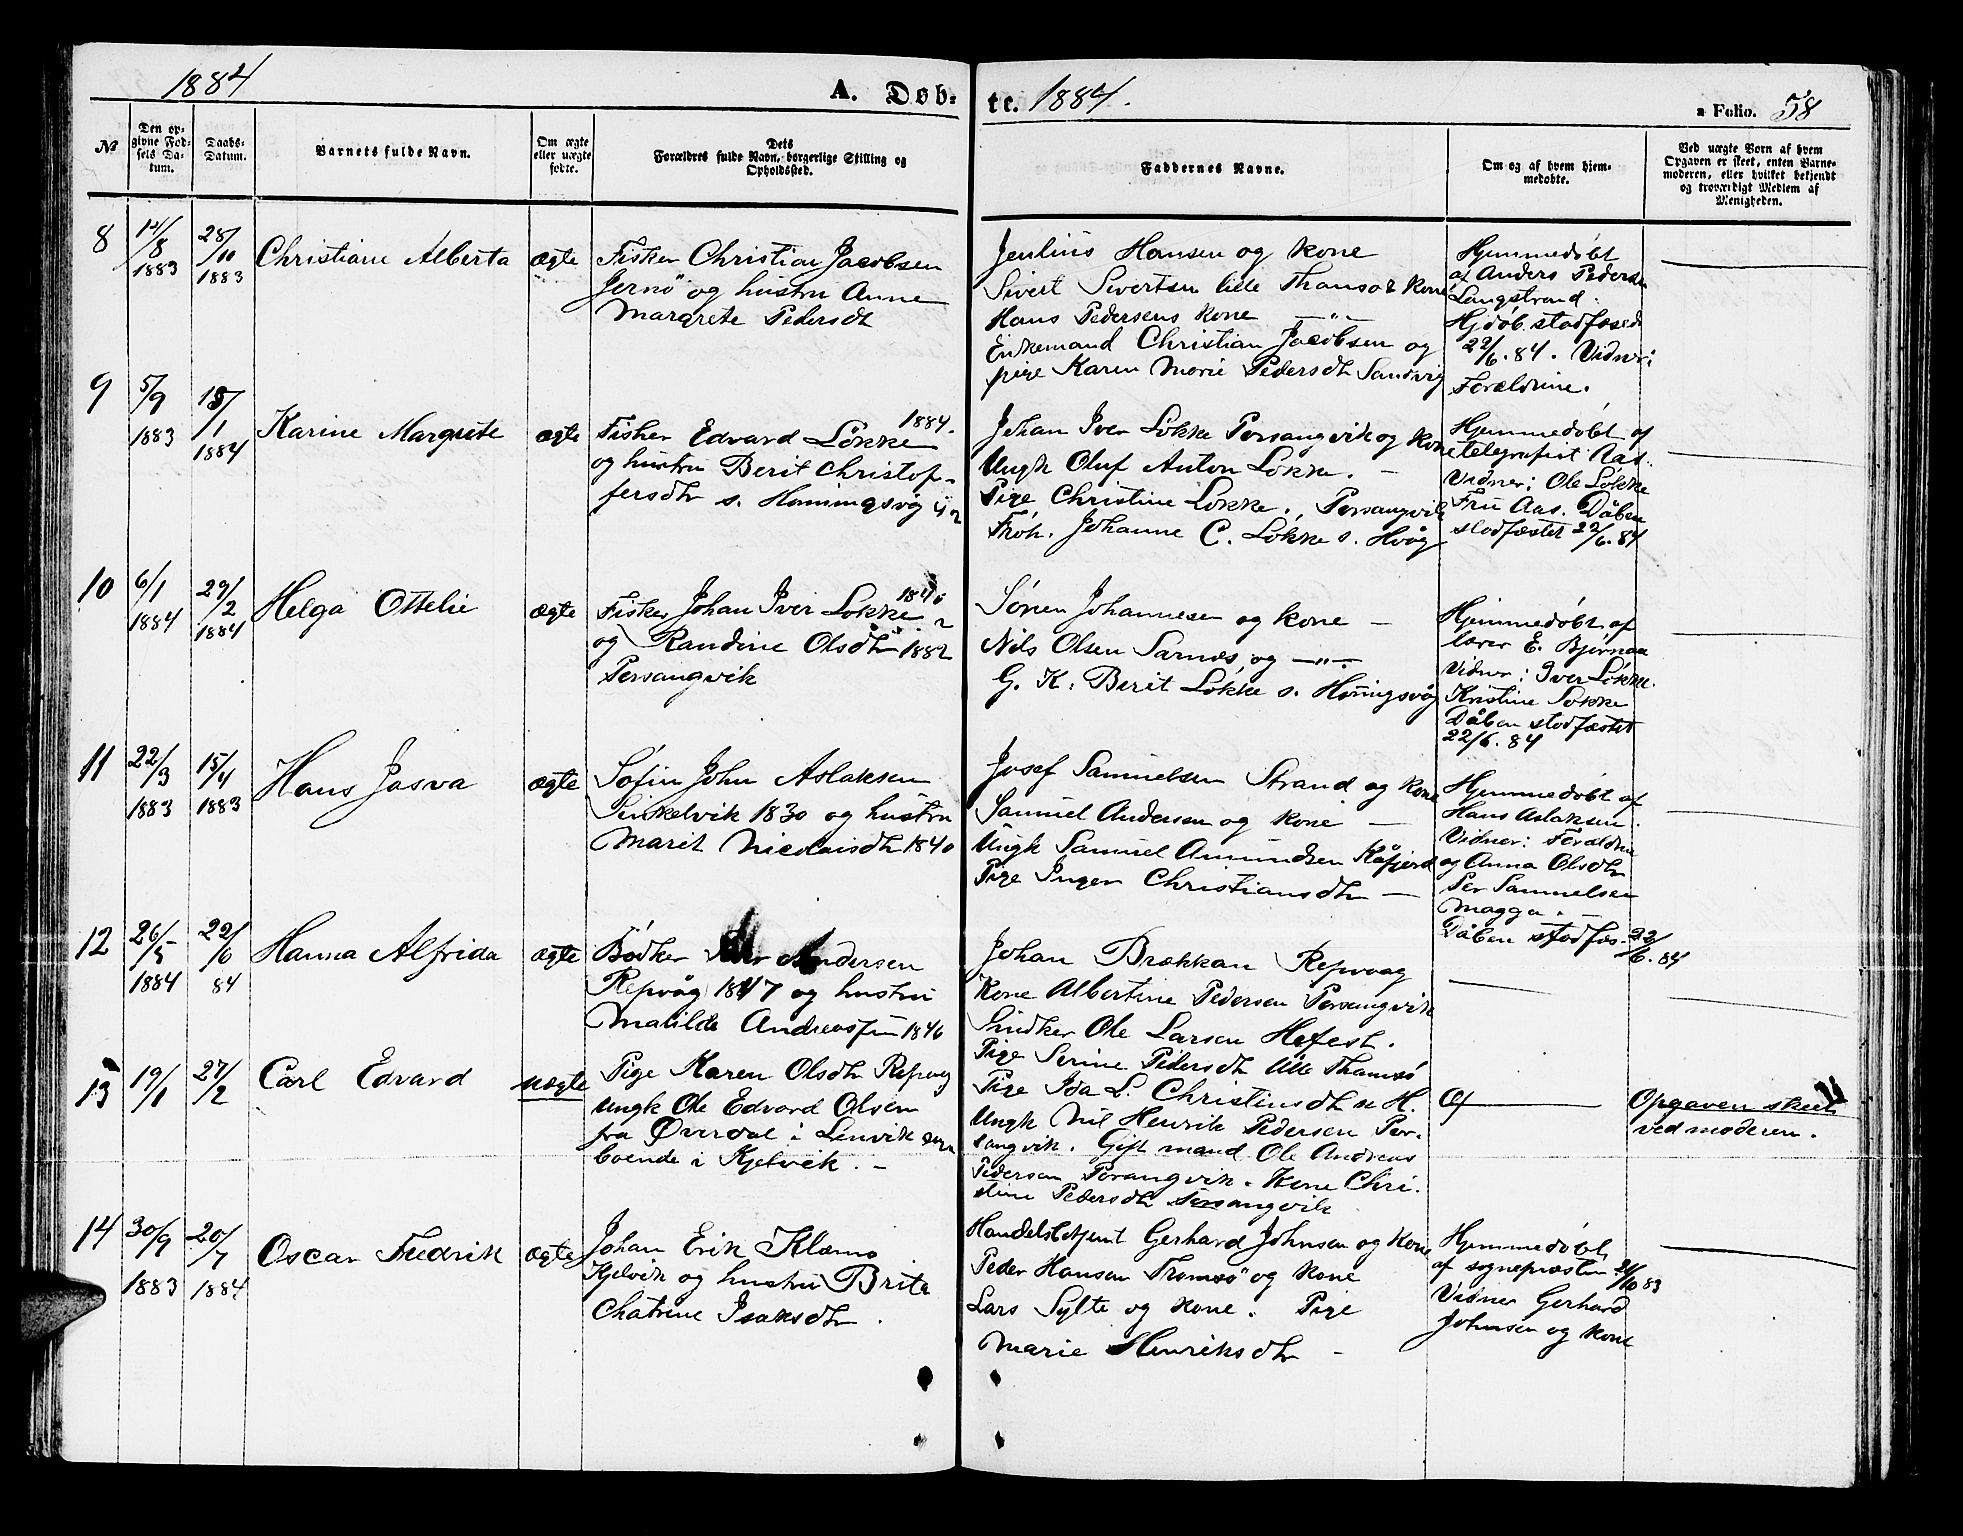 1884
A. Døb-
te. 1884.
a Folio. 58
№
Den op-
givne Fød-
sels Da-
tum.
Daabs-
Datum.
Barnets fulde Navn.
Om ægte
eller uægte
fødte.
Dets
Forældres fulde Navn, borgerlige Stilling og
Opholdssted.
Faddernes Navne.
Om og af hvem hjem-
medøbte.
Ved uægte Børn af hvem
Opgaven er skeet, enten Barne-
moderen, eller hvilket bekjendt
og troværdigt Medlem af
Menigheden.
8
14/8
1883
28/10
1883
Christiane Alberta
ægte
Fisker Christian Jacobsen
Jernö og hustru Anne
Margrete Pedersdtr
Jenlius Hansen og kone
Sivert Sivertsen lille Thamsø & kone
Hans Pedersens kone —"—
Enkemand Christian Jacobsen og
pige Karen Marie Pedersdtr Sandvig
Hjemmedøbt
af Anders Pedersen
Langstrand.
Hjdøb. stadfæsted
22/6. 84. Vidner:
Forældrene.
9
5/9
1883
18/1
1884
Karine Margrete
ægte
1884.
Fisker Edvard Løkke
og hustru Berit Christof-
fersdtr s. Honningsvög
Johan Iver Løkke Porsangvik og kone
Ungk Oluf Anton Løkke. —
Pige Christine Løkke., Porsangvik
Frøk. Johanne C. Løkke s. Hvåg
Hjemmedøbt af
telegrafist Aas.
Vidner: Ole Løkke
Fru Aas. Dåben
stadfæstet 22/6. 84
10
6/1
1884
29/2
1884
Helga Ottelie
ægte
Fisker Johan Iver Løkke
og Randine Olsdtr 1882
Porsangvik
Sören Johannesen og kone —
Nils Olsen Sarnæs, og —"—
G. K. Berit Løkke s. Honingsvåg
Hjemmedøbt af
lærer E. Bjørnaa
Vidner: Iver Løkke.
Kristine Løkke
Dåben stadfæstet
22/6. 84
11
22/3
1883
15/4
1883
Hans Josva
ægte
Søfin John Aslaksen
Sinkelvik 1830 og hustru
Marit Nicolaisdtr 1840
Josef Samuelsen Strand og kone
Samuel Andersen og kone —
Ungk Samuel Amundsen Kåfjord
Pige Inger Christiansdtr —
Hjemmedøbt af
Hans Aslaksen.
Vidner: Forældre
og Anna Olsdtr
Per Samuelsen
Magga. —
Dåben stadfæs. 22/6. 84
12
26/5
1884
22/6
84
Hanna Alfrida
ægte
Bødker Andersen
Repvåg 1847 og hustru
Matilde 1846
Johan Brækkan Repvaag
Kone Albertine Pedersen Porsangvik
Snidker Ole Larsen Hafest.
Pige Serine Pedersdtr lille Thamsø
13
19/1
27/2
Carl Edvard
uægte
Pige Karen Olsdtr Repvag
Ungk Ole Edvard Olsen
fra Øverdal i Lenvik
boende i Kjelvik. —
Pige Ida L. Christinsdtr n H.
Ungk Nil Henrik Pedersen Por-
sangvik. Gift mand Ole Andreas
Pedersen Porsangvik. Kone Chri-
stine Pedersdtr Porsangvik
Opgaven skeet
ved moderen.
14
30/9
1883
20/7
1884
Oscar Fredrik
ægte
Johan Erik Klemo
Kjelvik og hustru Brita
Chatrine Isaksdtr.
Handelsbetjent Gerhard Johnsen og kone
Peder Hansen Tromsö og kone
Lars Sylte og kone. Pige
Marie Henriksdtr —
Hjemmedøbt
af sognepræsten 21/10 83
Vidner Gerhard
Johnsen og kone